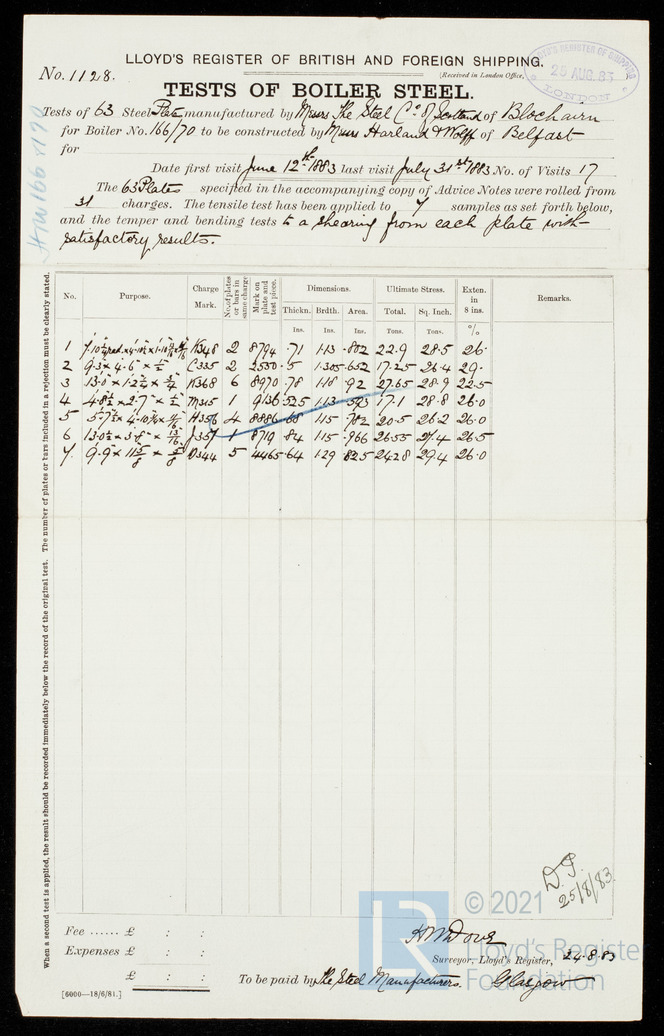 LLOYD'S REGISTER OF BRITISH AND FOREIGN SHIPPING.
No. 1128.
(Received in London Office,
LLOYD'S REGISTER OF SHIPPING
29 AUG. 83
LONDON
TESTS OF BOILER STEEL.
Tests of 63 Steel Plate manufactured by Messrs The Steel Co. of Scotland of Blochairn
for Boiler No. 166/70 to be constructed by Messrs Harland & Wolff of Belfast
for
Date first visit June 12th 1883 last visit July 31st 1883 No. of Visits 17
The 63 Plates specified in the accompanying copy of Advice Notes were rolled from
31 charges. The tensile test has been applied to 7 samples as set forth below,
and the temper and bending tests to a shearing from each plate with
satisfactory results.
H&W 166 & 170
When a second test is applied, the result should be recorded immediately below the record of the original test. The number of plates or bars included in a rejection must be clearly stated.
No. Purpose. Charge Mark. No. of plates or bars in same charge Mark on plate and test piece. Dimensions. Ultimate Stress. Exten. in 8 ins. Remarks.
Thickn. Brdth. Area. Total. Sq. Inch.
Ins. Ins. Ins. Tons. Tons. %
1 K348 2 8794 .71 1.13 .802 22.9 28.5 26.
2 9.3 x 4.6 x 1/2 C335 2 2530 .5 1.305 .652 17.25 26.4 29.
3 K368 6 8970 .78 1.18 .92 27.65 28.9 22.5
4 M315 1 9136 .525 1.13 .593 17.1 28.8 26.0
5 H356 4 8886 .68 1.15 .782 20.5 26.2 26.0
6 J357 1 8719 .84 1.15 .966 26.55 27.4 26.5
7. D344 5 4465 .64 1.29 .825 24.28 29.4 26.0
D.P.
25/8/83.
© 2021
Lloyd's Register
Foundation
Fee ...... £ : :
Expenses £ : :
Surveyor, Lloyd's Register, 24.8.83
£ : : To be paid by The Steel Manufacturers. Glasgow
[6000—18/6/81.]